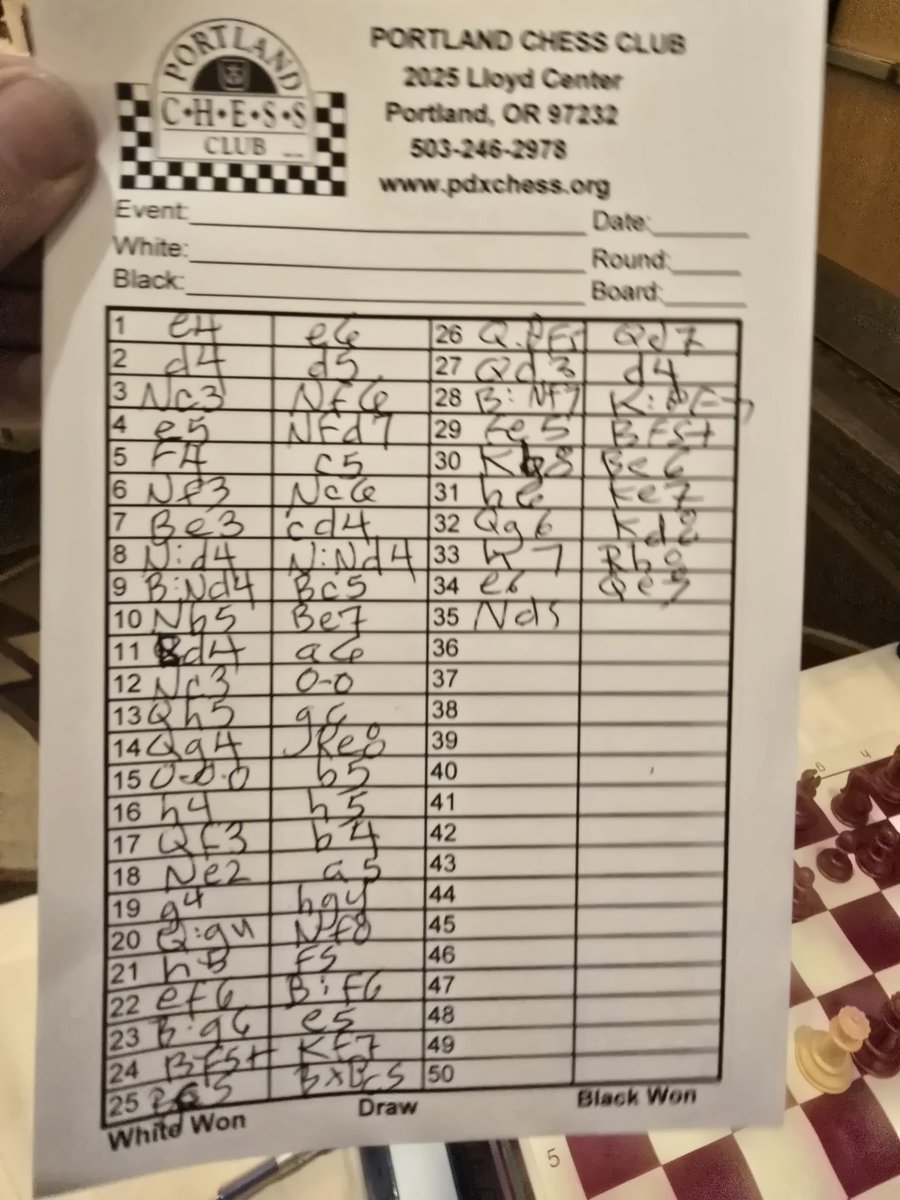 PORTLAND
C·H·E·S·S
CLUB
PORTLAND CHESS CLUB
2025 Lloyd Center
Portland, OR 97232
503-246-2978
www.pdxchess.org
Event: Date:
White: Round:
Black: Board:
1 e4 e6 26 Qd7
2 d4 d5 27 Qd3 d4
3 Nc3 Nf6 28 B:Nf7
4 e5 Nfd7 29 fe5 Bf5+
5 F4 c5 30 Be6
6 Nf3 Nc6 31 h6 Ke7
7 Be3 cd4 32 Qg6 Kd8
8 N:d4 N:Nd4 33 h7 Rh8
9 B:Nd4 Bc5 34 e6 Qe7
10 Nb5 Be7 35 Nd5
11 Bd4 a6 36
12 Nc3 0-0 37
13 Qh5 g6 38
14 Qg4 Re8 39
15 0-0-0 b5 40
16 h4 h5 41
17 Qf3 b4 42
18 Ne2 a5 43
19 g4 hg4 44
20 Q:g4 Nf8 45
21 h5 f5 46
22 ef6 B:f6 47
23 B:g6 e5 48
24 Bf5+ Kf7 49
25 50
White Won Draw Black Won
5